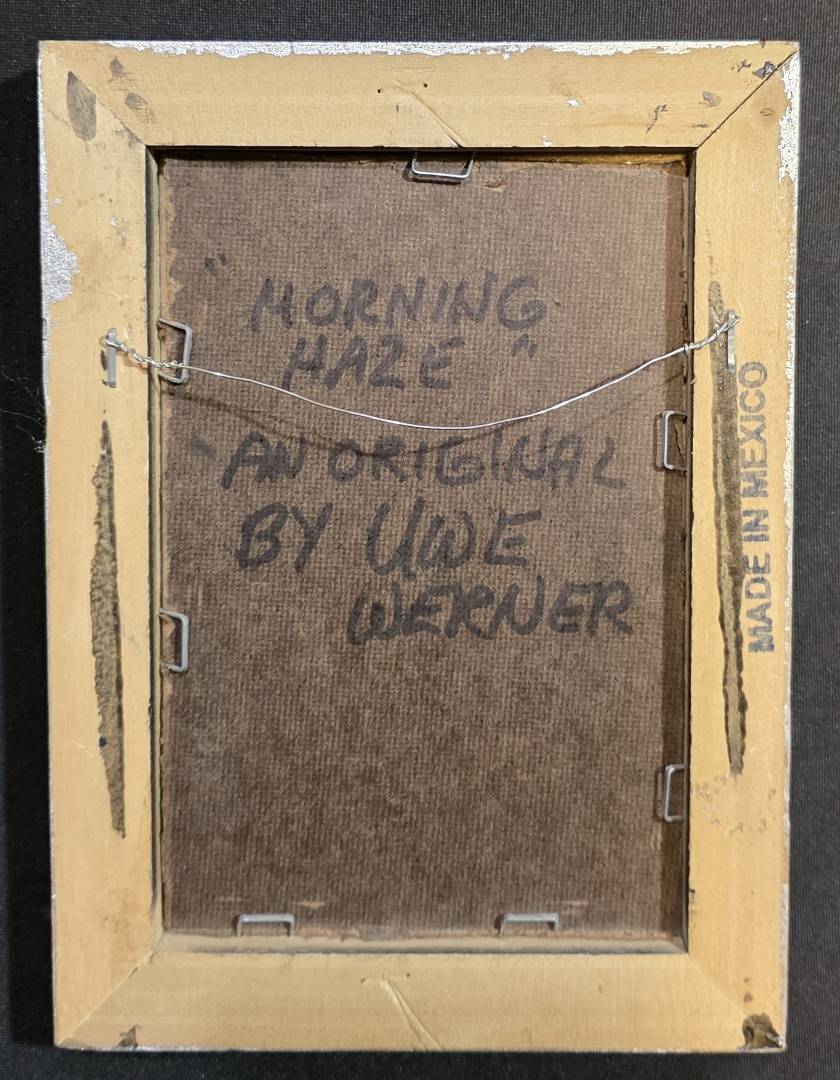 "MORNING
HAZE"
- AN ORIGINAL
BY UWE
WERNER
MADE IN MEXICO